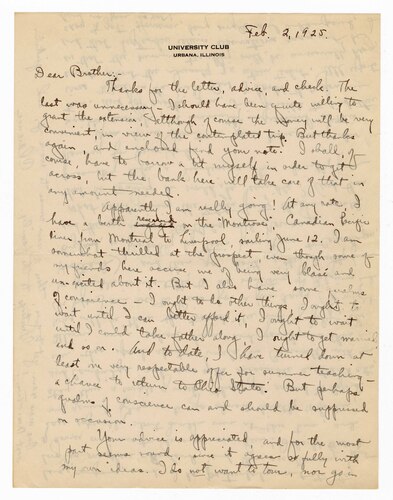 Feb. 2, 1925.
UNIVERSITY CLUB
URBANA, ILLINOIS
Dear Brother:-
Thanks for the letter, advice, and check. The
last was unnecessary - I should have been quite willing to
grant the extension, although of course the money will be very
convenient, in view of the contemplated trip. But thanks
again, and enclosed find your note. I shall, of
course, have to borrow a bit myself in order to get
across, but the bank here will take care of that in
any amount needed.
Apparently I am really going! At any rate I
have a berth reserved on the "Montrose", Canadian Pacific
lines from Montreal to Liverpool, sailing June 12. I am
somewhat thrilled at the prospect, even though some of
my friends here accuse me of being very blasé and
unexcited about it. But I also have some qualms
of conscience - I ought to do other things, I ought to
wait until I can better afford it, I ought to wait
until I could take father along, I ought to get married
and so on. And to date, I have turned down at
least one very respectable offer for summer teaching -
a chance to return to Ohio State. But perhaps
qualms of conscience can and should be suppressed
on occasion.
Your advice is appreciated, and for the most
part seems sound, since it agrees so fully with
my own ideas. I do not want to tour, nor go in